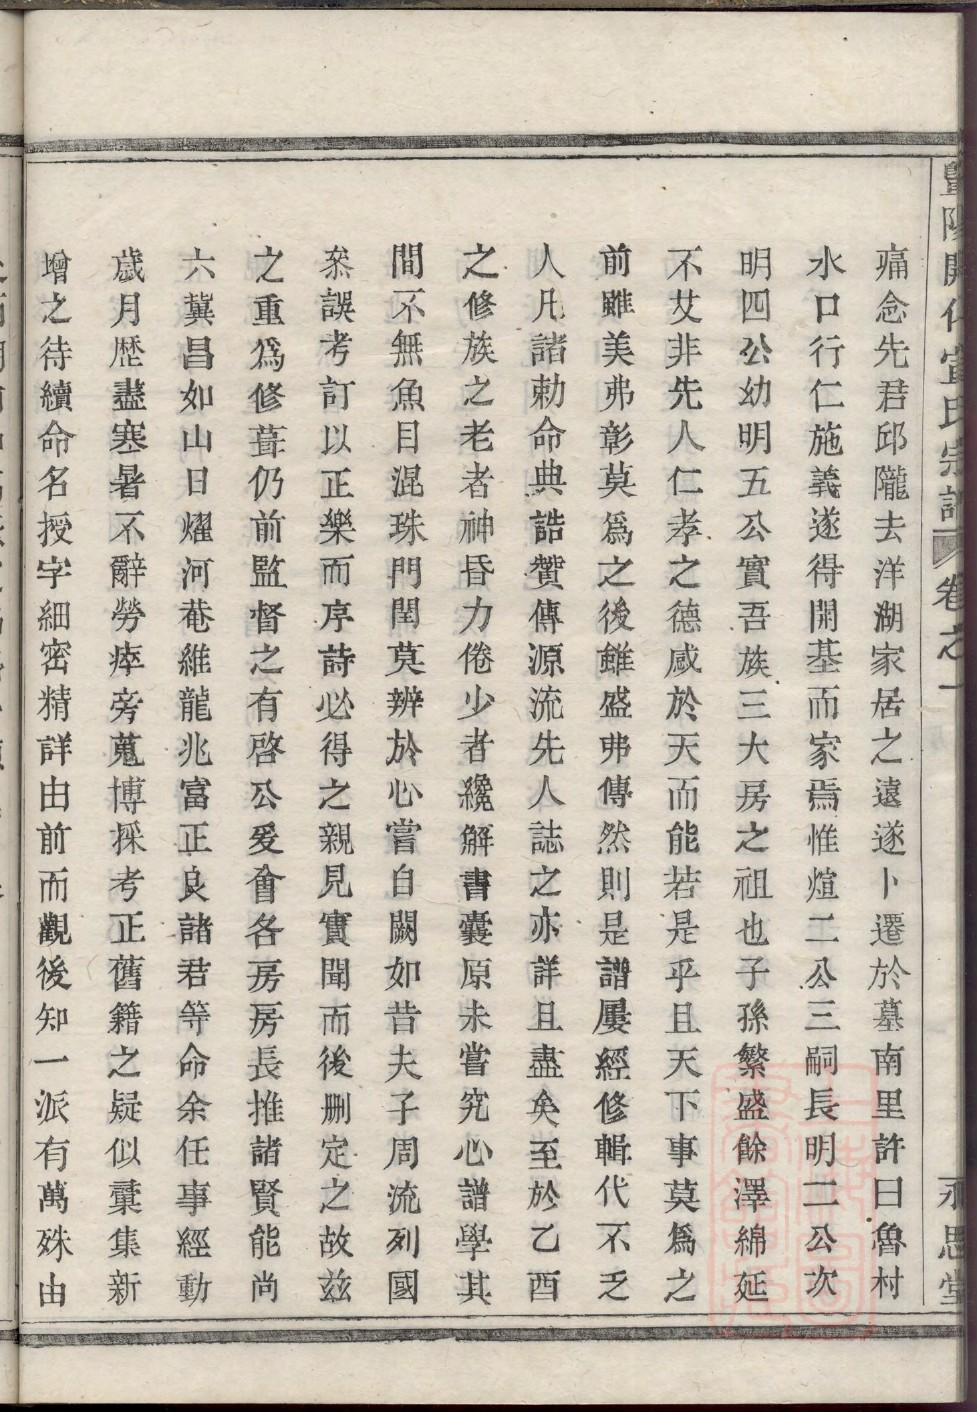 暨陽開化宣氏宗譜 卷之一 永思堂
痛念先君邱隴去洋湖家居之遠遂卜遷於墓南里許曰魯村
水口行仁施義遂得開基而家焉惟煊二公三嗣長明二公次
明四公幼明五公實吾族三大房之祖也子孫繁盛餘澤綿延
不艾非先人仁孝之德感於天而能若是乎且天下事莫爲之
前雖美弗彰莫爲之後雖盛弗傳然則是譜屢經修輯代不乏
人凡諸勅命典誥贊傳源流先人誌之亦詳且盡矣至於乙酉
之修族之老者神昏力倦少者纔解書囊原未嘗究心譜學其
間不無魚目混珠門閏莫辨於心嘗自闕如昔夫子周流列國
叅誤考訂以正樂而序詩必得之親見實聞而後删定之故茲
之重爲修葺仍前監督之有啓公爰會各房房長推諸賢能尚
六冀昌如山日燿河菴維龍兆富正良諸君等命余任事經動
歲月歴盡寒暑不辭勞瘁旁蒐博採考正舊籍之疑似彙集新
增之待續命名授字細密精詳由前而觀後知一派有萬殊由